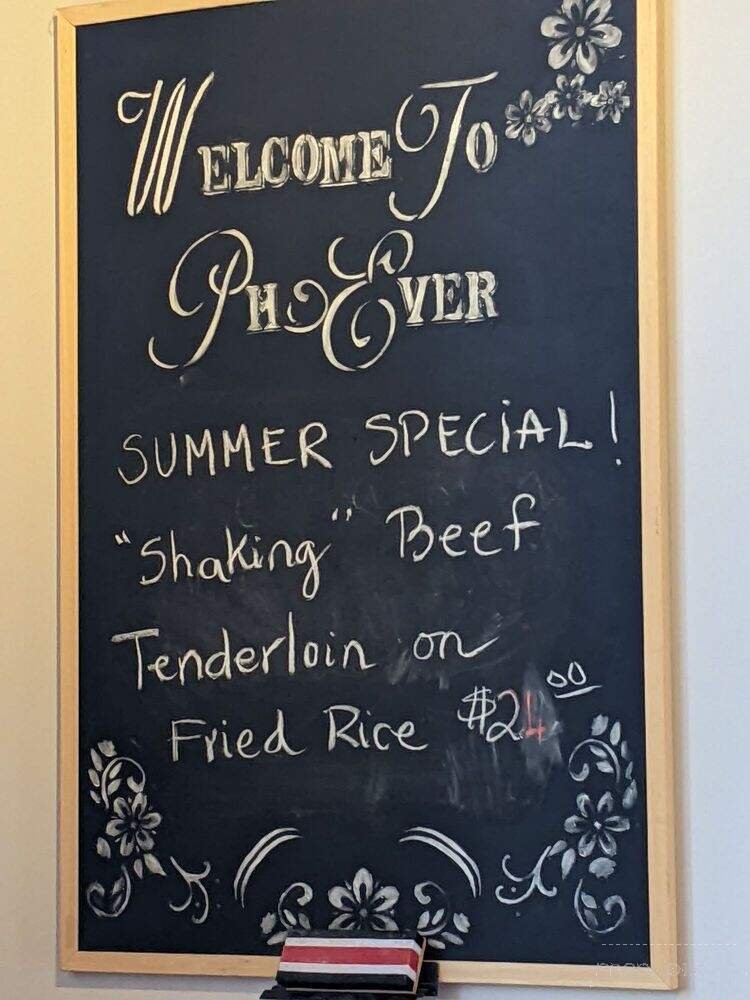 WELCOME TO
PHO EVER
SUMMER SPECIAL!
"Shaking" Beef
Tenderloin on
Fried Rice $24.00